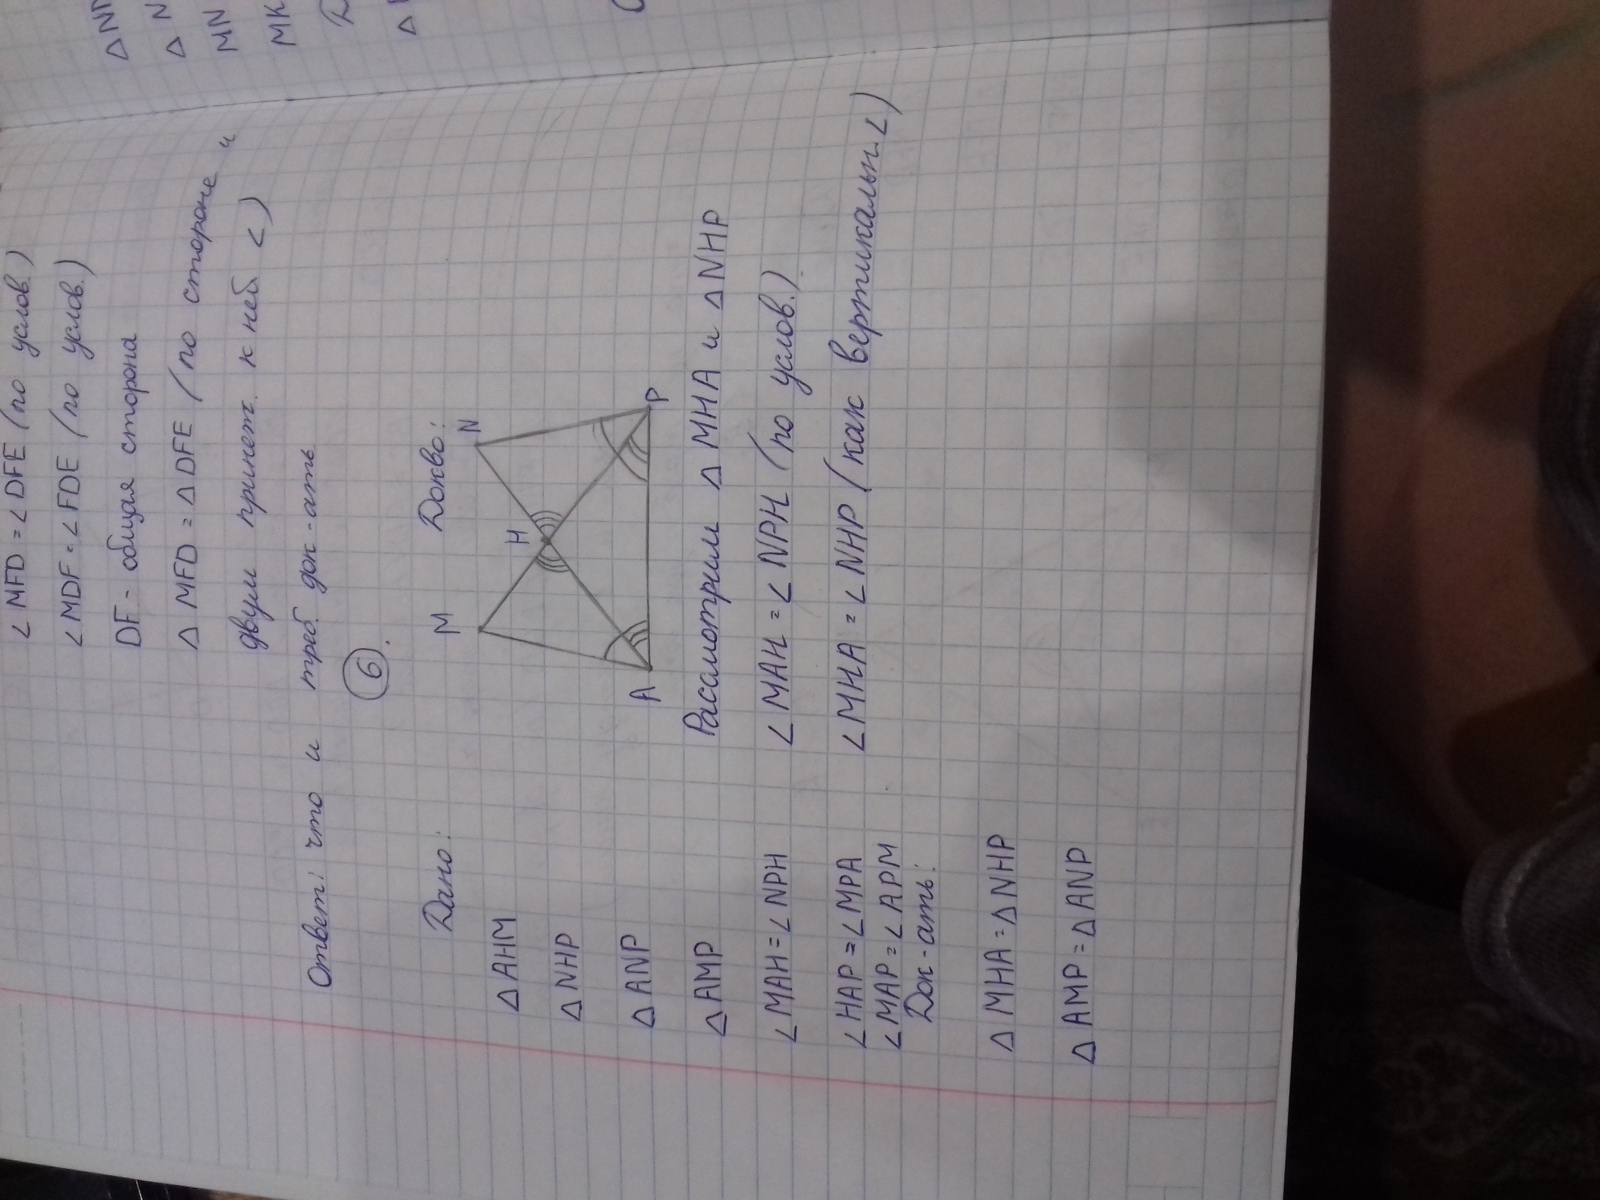 ∠ MFD = ∠ DFE (по услов.)
∠ MDF = ∠ FDE (по услов.)
DF - общая сторона
△ MFD = △ DFE (по стороне и
двум прилеж. к ней ∠)
Ответ: что и треб. док-ать
6.
Дано:
△ AHM
△ NHP
△ ANP
△ AMP
∠ MAH = ∠ NPH
∠ HAP = ∠ MPA
∠ MAP = ∠ APM
Док-ать:
△ MHA = △ NHP
△ AMP = △ ANP
Доквo:
M
N
H
A
P
Рассмотрим △ MHA и △ NHP
∠ MAH = ∠ NPH (по услов.)
∠ MHA = ∠ NHP (как вертикальн. ∠)
△ NP
△ N
MN
MK
△